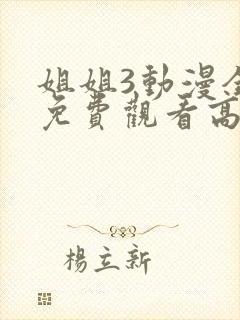 姐姐3動漫全
免費觀看高
楊立新